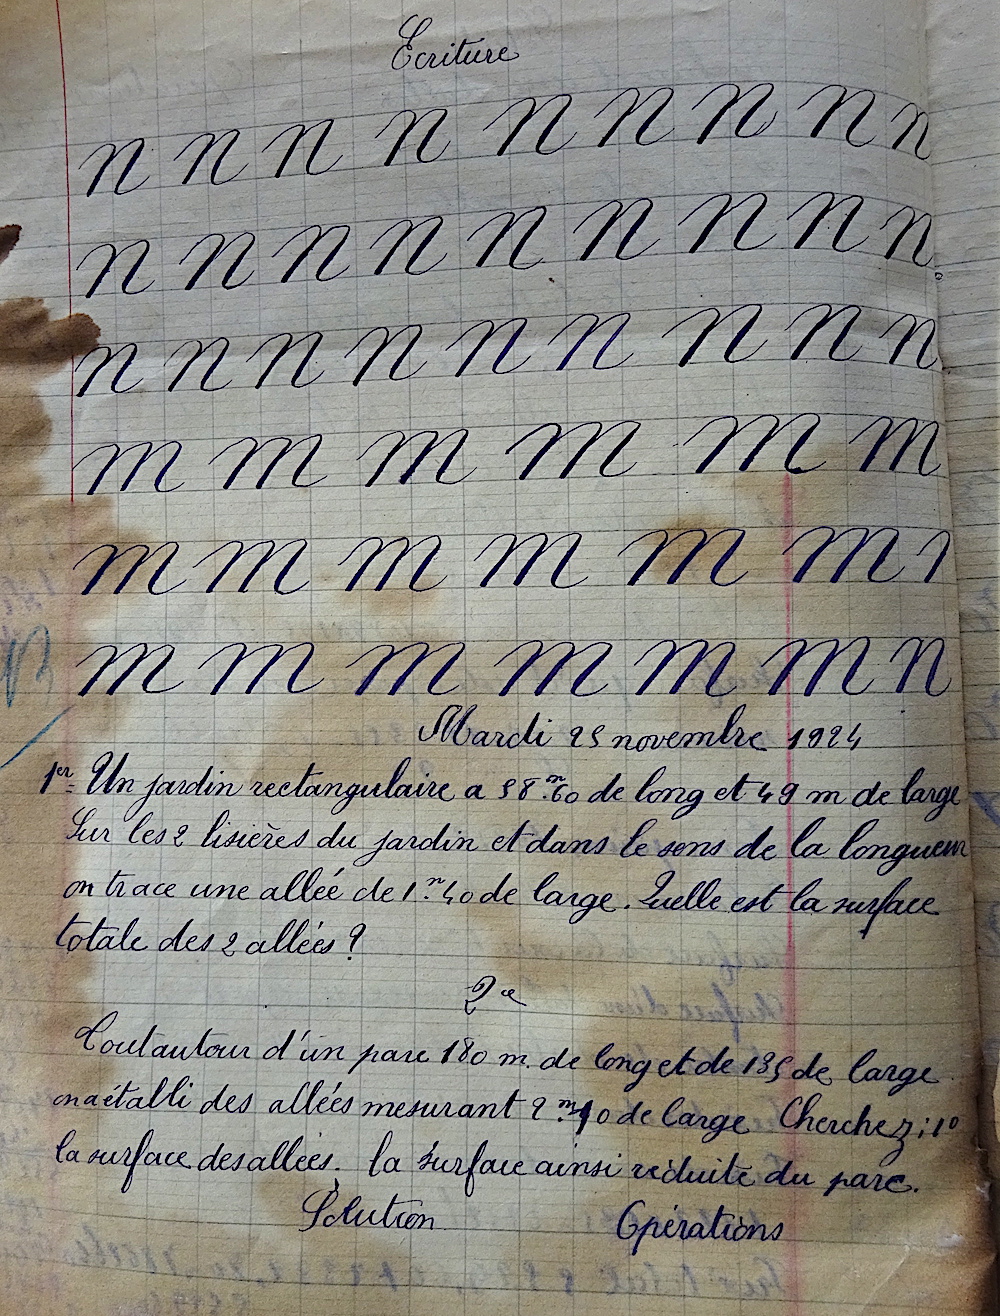 Ecriture
n n n n n n n n n
n n n n n n n n n.
n n n n n n n n n
m m m m m m
m m m m m m n
m m m m m m n
Mardi 25 novembre 1924
1er Un jardin rectangulaire a 58 m.60 de long et 49 m de large
Sur les 2 lisières du jardin et dans le sens de la longueur
on trace une allée de 1 m.40 de large. Quelle est la surface
totale des 2 allées ?
2e
Tout autour d'un parc 180 m. de long et de 135 de large
on a établi des allées mesurant 2 m de large Cherchez ; 1°
la surface des allées. la surface ainsi réduite du parc.
Solution Opérations